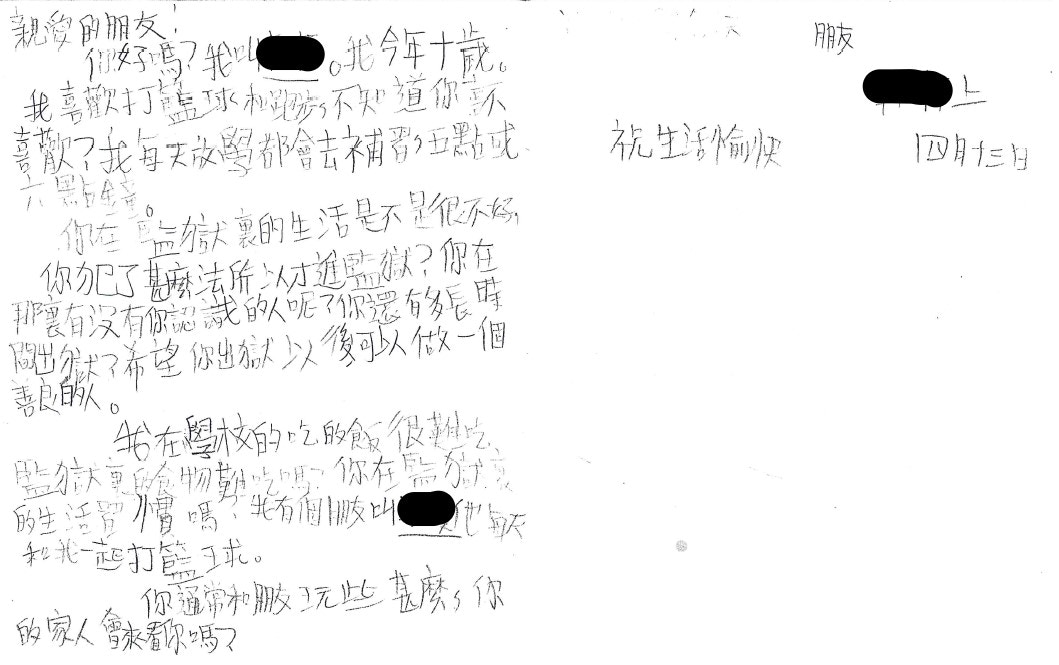 親愛的朋友：
你好嗎？我叫。我今年十歲。
我喜歡打籃球和跑步，不知道你喜不
喜歡？我每天放學都會去補習，五點或
六點鐘。
你在監獄裏的生活是不是很不好，
你犯了甚麼法所以才進監獄？你在
那裏有没有你認識的人呢？你還有多長時
間出獄？希望你出獄以後可以做一個
善良的人。
我在學校的吃的飯很難吃，
監獄裏的食物難吃嗎？你在監獄裏
的生活習慣嗎？我有個朋友叫他每天
和我一起打籃球。
你通常和朋友玩些甚麼，你
的家人會來看你嗎？
朋友
上
祝生活愉快
四月十三日